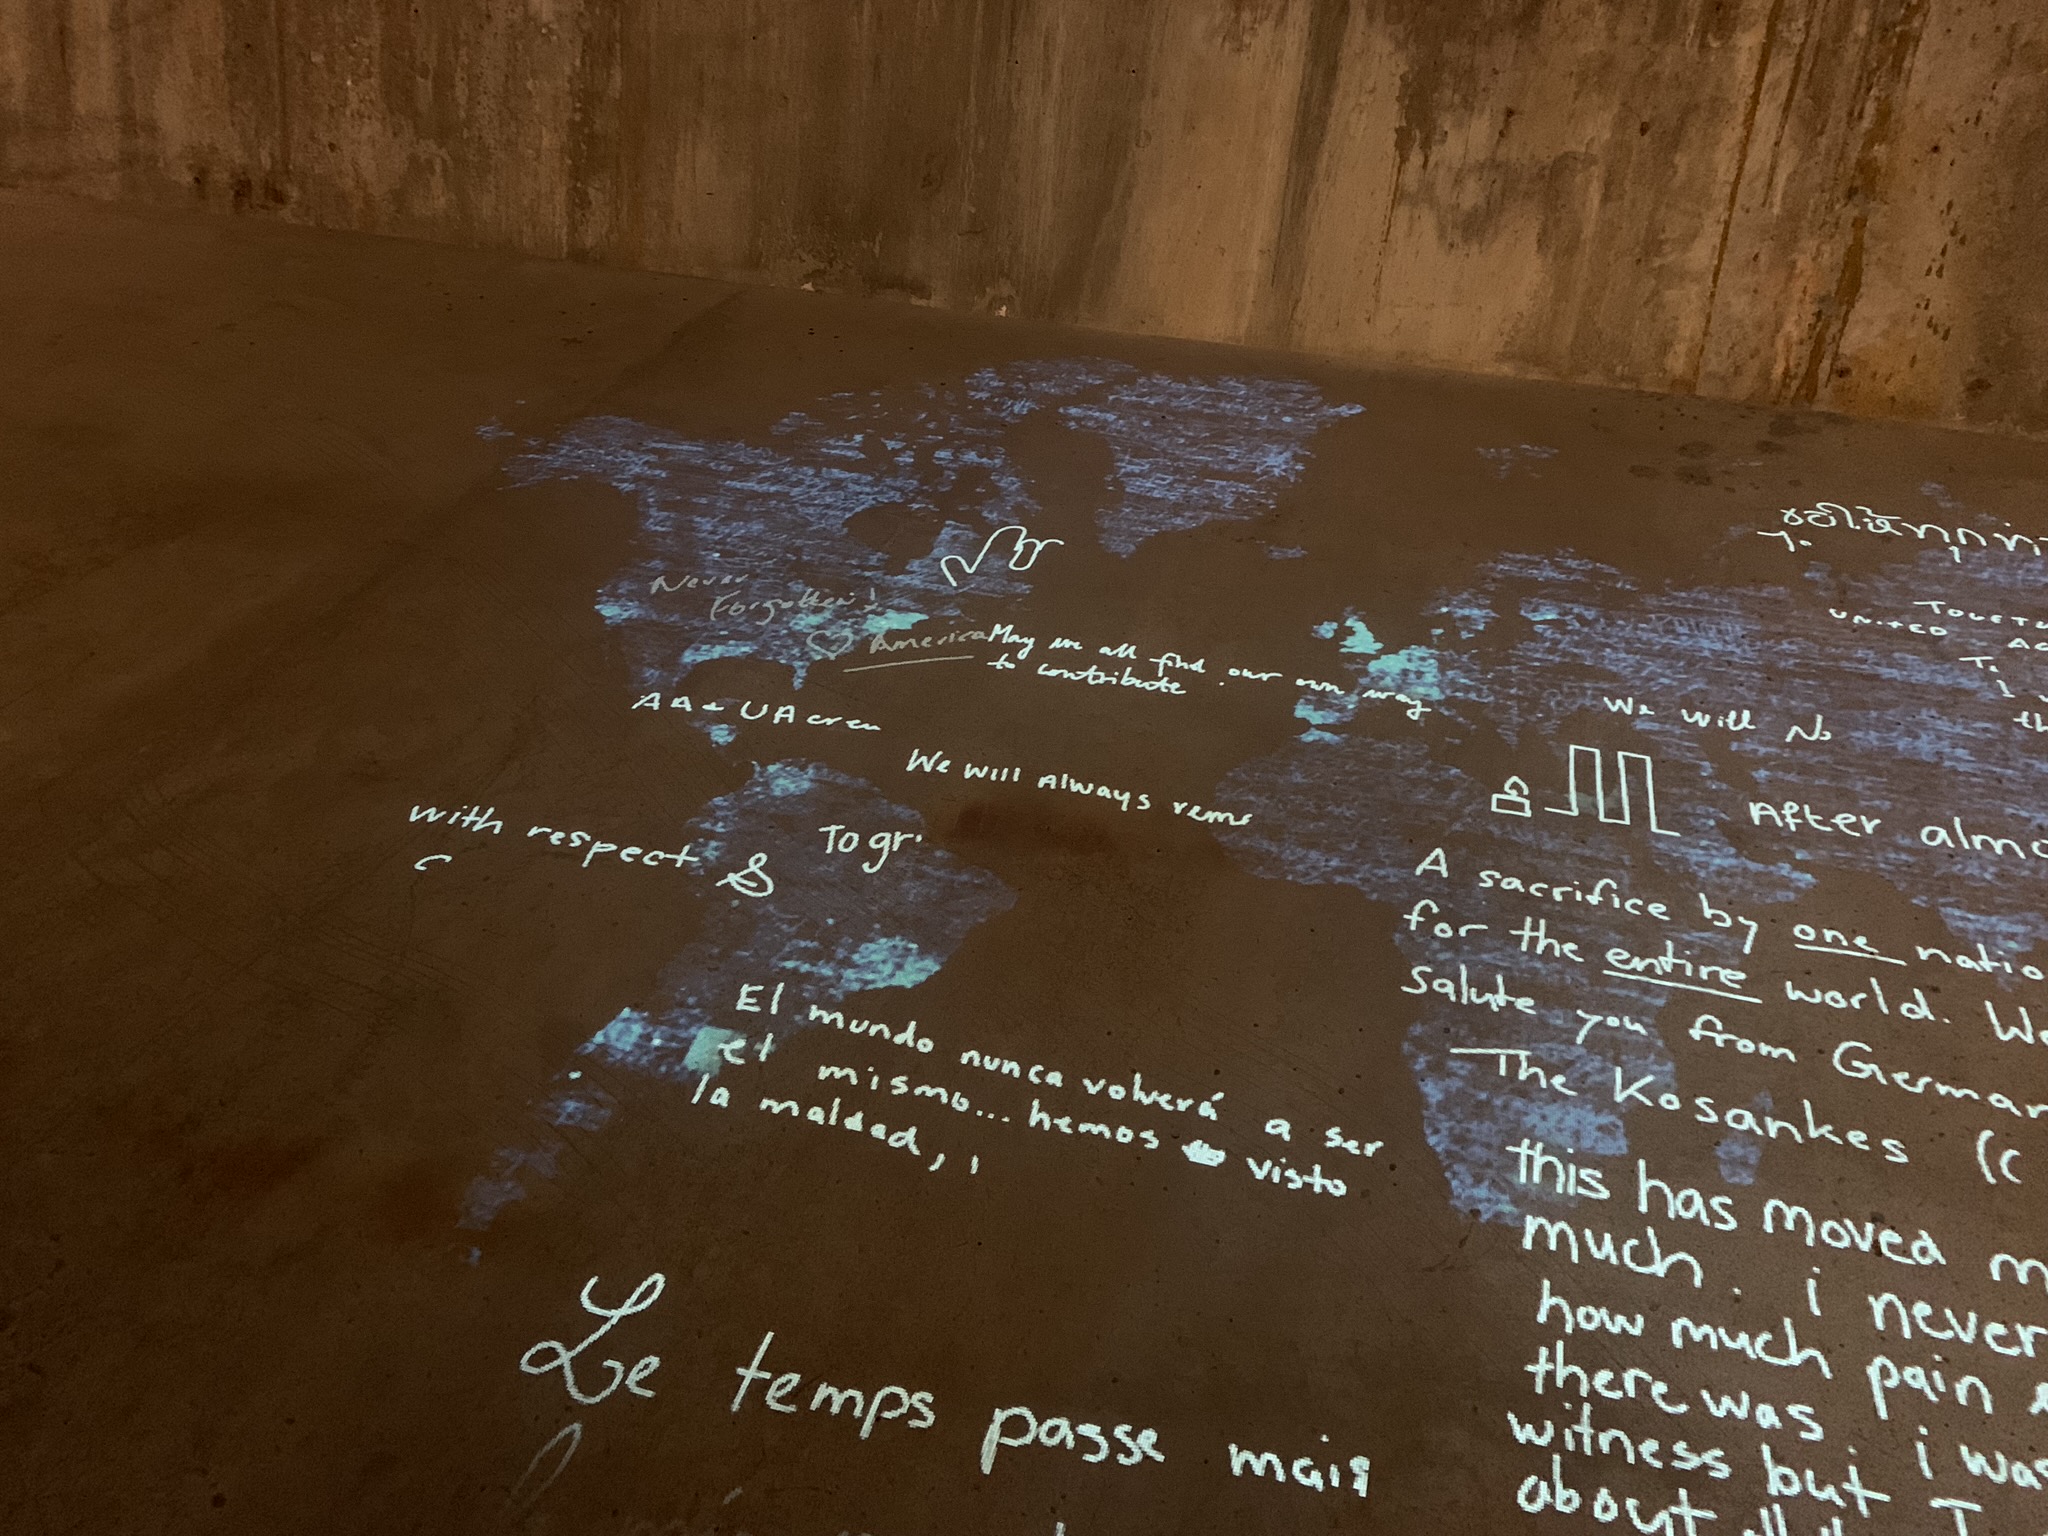 Never
Forgotten!
America
May we all find our own way
to contribute.
AA + UA crew
We will Always rem
with respect
To gr
El mundo nunca volverá a ser
el mismo... hemos visto
la maldad,
Le temps passe mais
TO
UNITED
We will No
After almo
A sacrifice by one natio
for the entire world. We
salute you from German
The Kosankes (c
this has moved m
much. i never
how much pain
there was. i was
witness but I
about